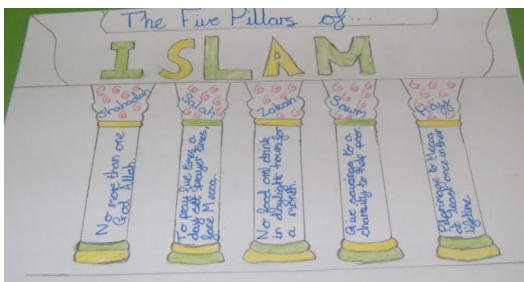 The Five Pillars of...
ISLAM
Shahadah
No more than one
God Allah.
Salah
To pray five times a
day set prayer times,
face Mecca.
Zakah
No food and drink
in daylight hours for
a month.
Sawm
Give to a
charity to help poor.
Hajj
Pilgrimage to Mecca
at least once in their
lifetime.